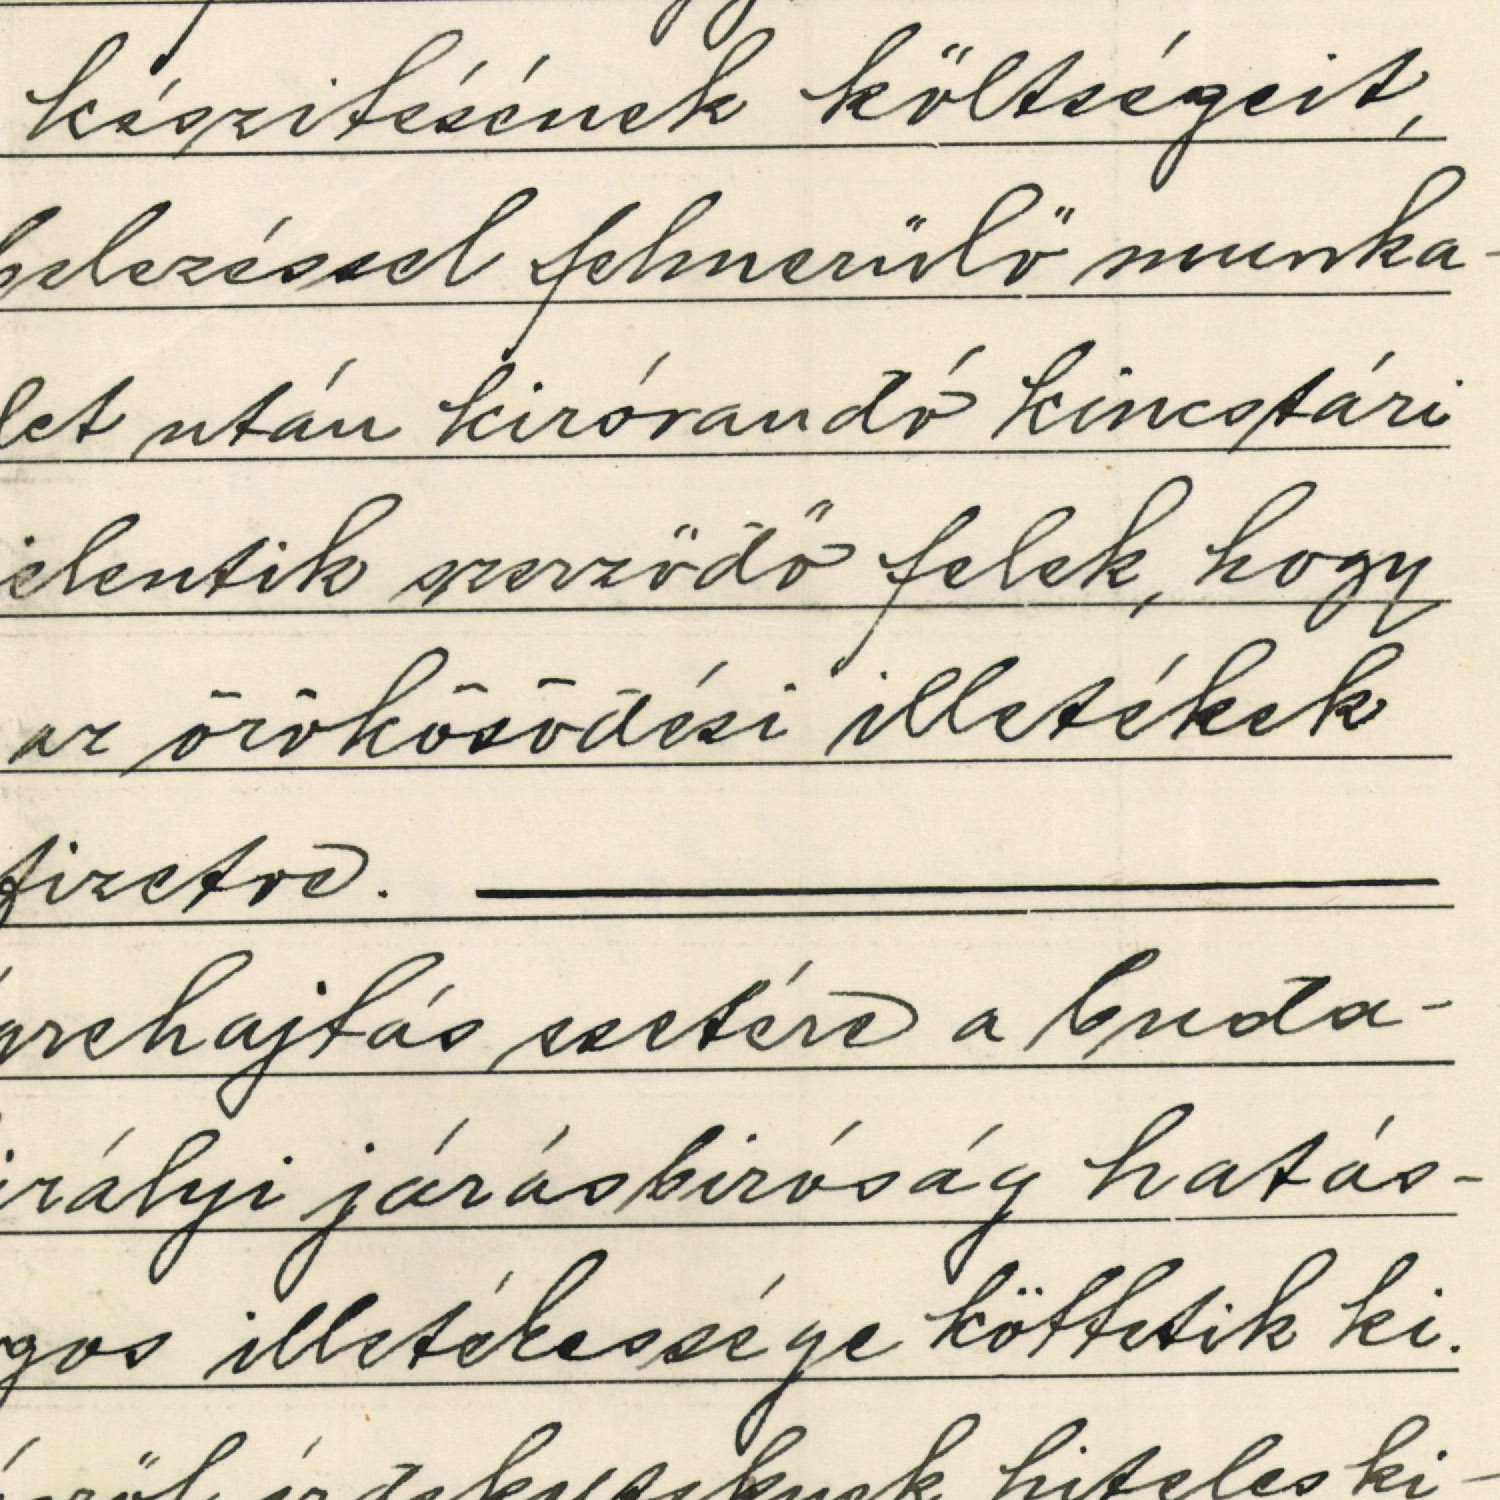 készitésének költségeit,
belezéssel felmerülő munka-
let után kiróvandó kincstári
jelentik szerződő felek, hogy
az örökösödési illetékek
fizetve.
végrehajtás esetére a buda-
királyi járásbiróság hatás-
gos illetékessége köttetik ki.
érdekelteknek hiteles ki-